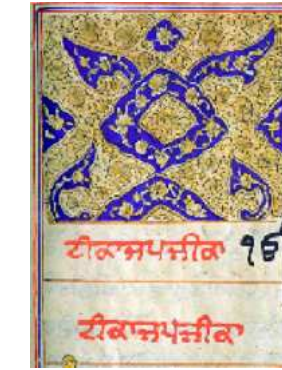 ਟੀਕਾਜਪਜੀਕਾ ੧੬
ਟੀਕਾਜਪਜੀਕਾ